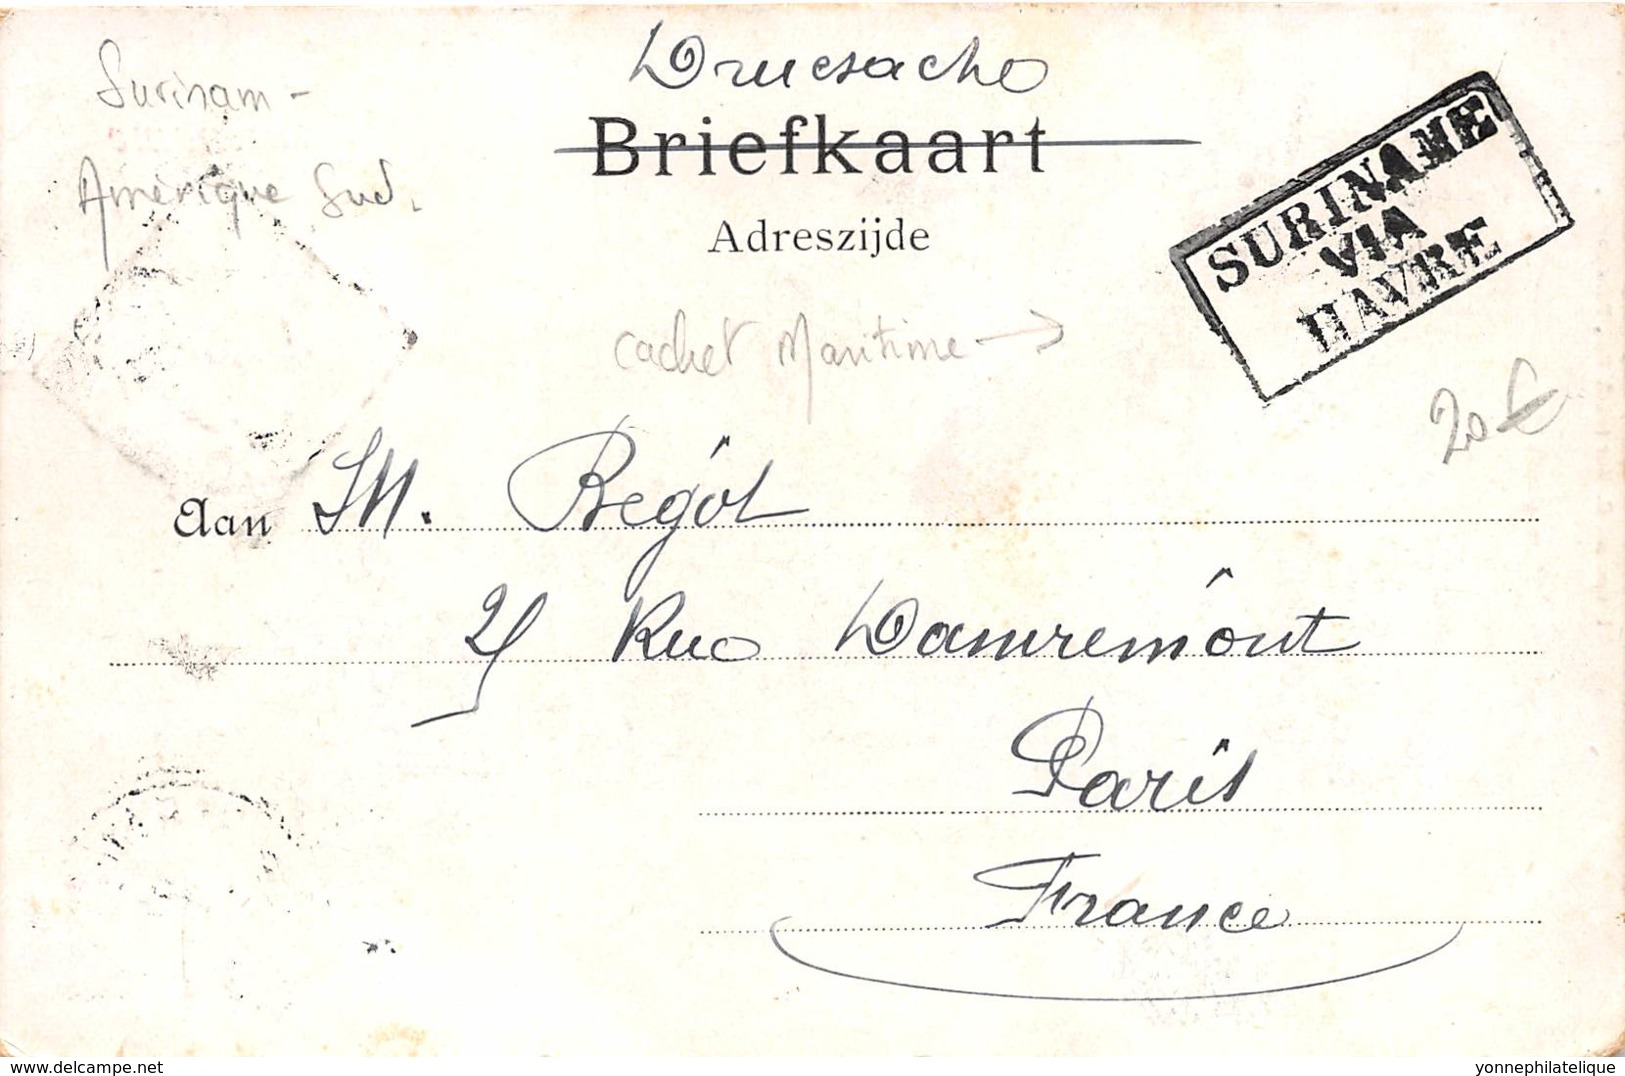 Drucsache
Surinam -
Amérique Sud.
Briefkaart
Adreszijde
SURINAME
VIA
HAVRE
cachet Maritime →
20€
Aan M. Bégot
Rue Damrémont
Paris
France
delcampe.net
yonnephilatelique